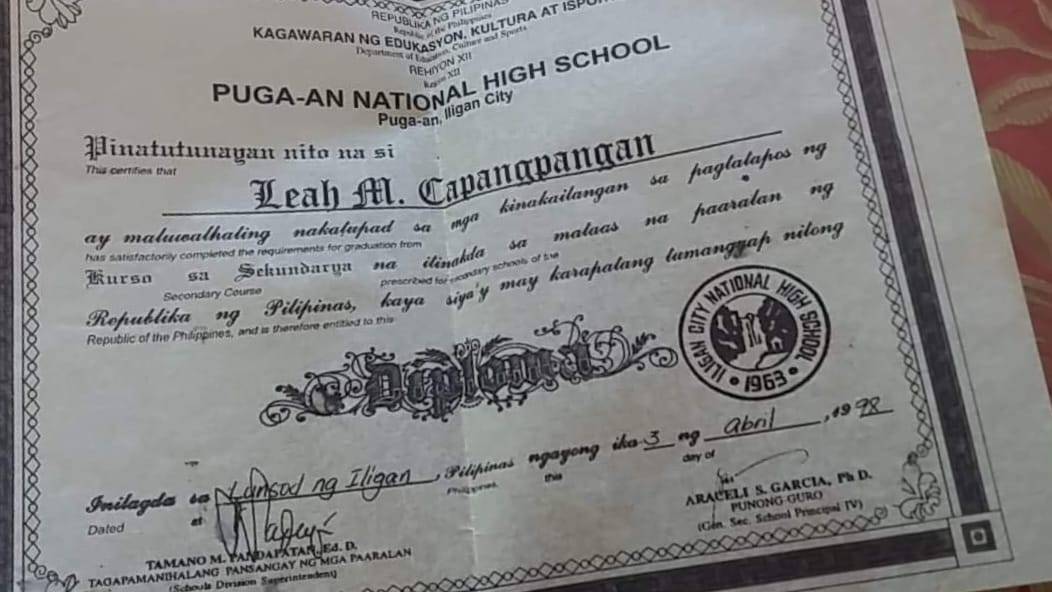 REPUBLIKA NG PILIPINAS
Republic of the Philippines
KAGAWARAN NG EDUKASYON, KULTURA AT ISPORT
Department of Education, Culture and Sports
REHIYON XII
Region XII
PUGA-AN NATIONAL HIGH SCHOOL
Puga-an, Iligan City
Pinatutunayan nito na si
This certifies that
Leah M. Capangpangan
ay maluwalhating nakatupad sa mga kinakailangan sa pagtatapos ng
has satisfactorily completed the requirements for graduation from
Kurso sa Sekundarya na itinakda sa mataas na paaralan ng
Secondary Course prescribed for secondary schools of the
Republika ng Pilipinas, kaya siya'y may karapatang tumanggap nitong
Republic of the Philippines, and is therefore entitled to this
Diploma
ILIGAN CITY NATIONAL HIGH SCHOOL
• 1963 •
Inilagda sa Lunsod ng Iligan, Pilipinas ngayong ika 3 ng Abril, 1998
Dated at Philippines, this day of
ARACELI S. GARCIA, Ph D.
PUNONG-GURO
(Gen. Sec. School Principal IV)
TAMANO M. PANDAPATAN, Ed. D.
TAGAPAMANIHALANG PANSANGAY NG MGA PAARALAN
(Schools Division Superintendent)